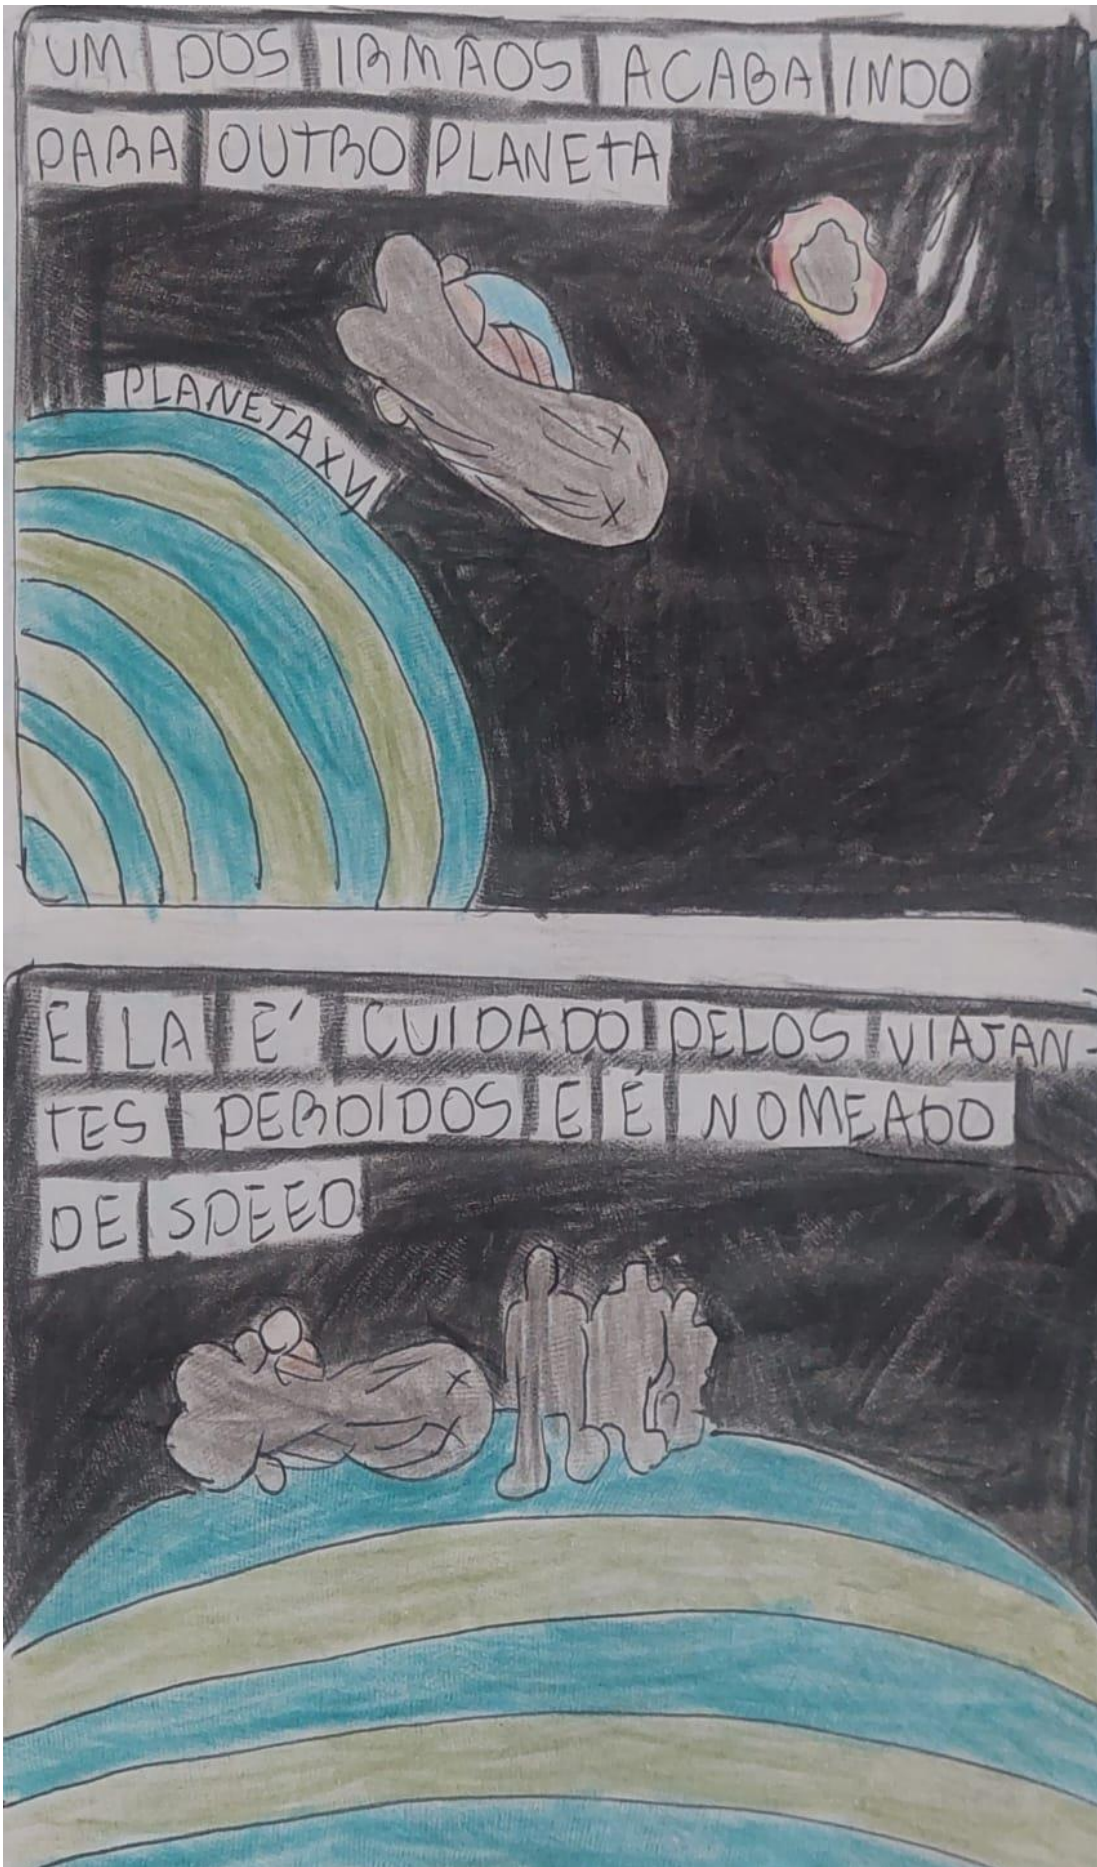 UM DOS IRMÃOS ACABA INDO
PARA OUTRO PLANETA
PLANETA XY
E LA E' CUIDADO PELOS VIAJAN-
TES PERDIDOS E É NOMEADO
DE SPEED